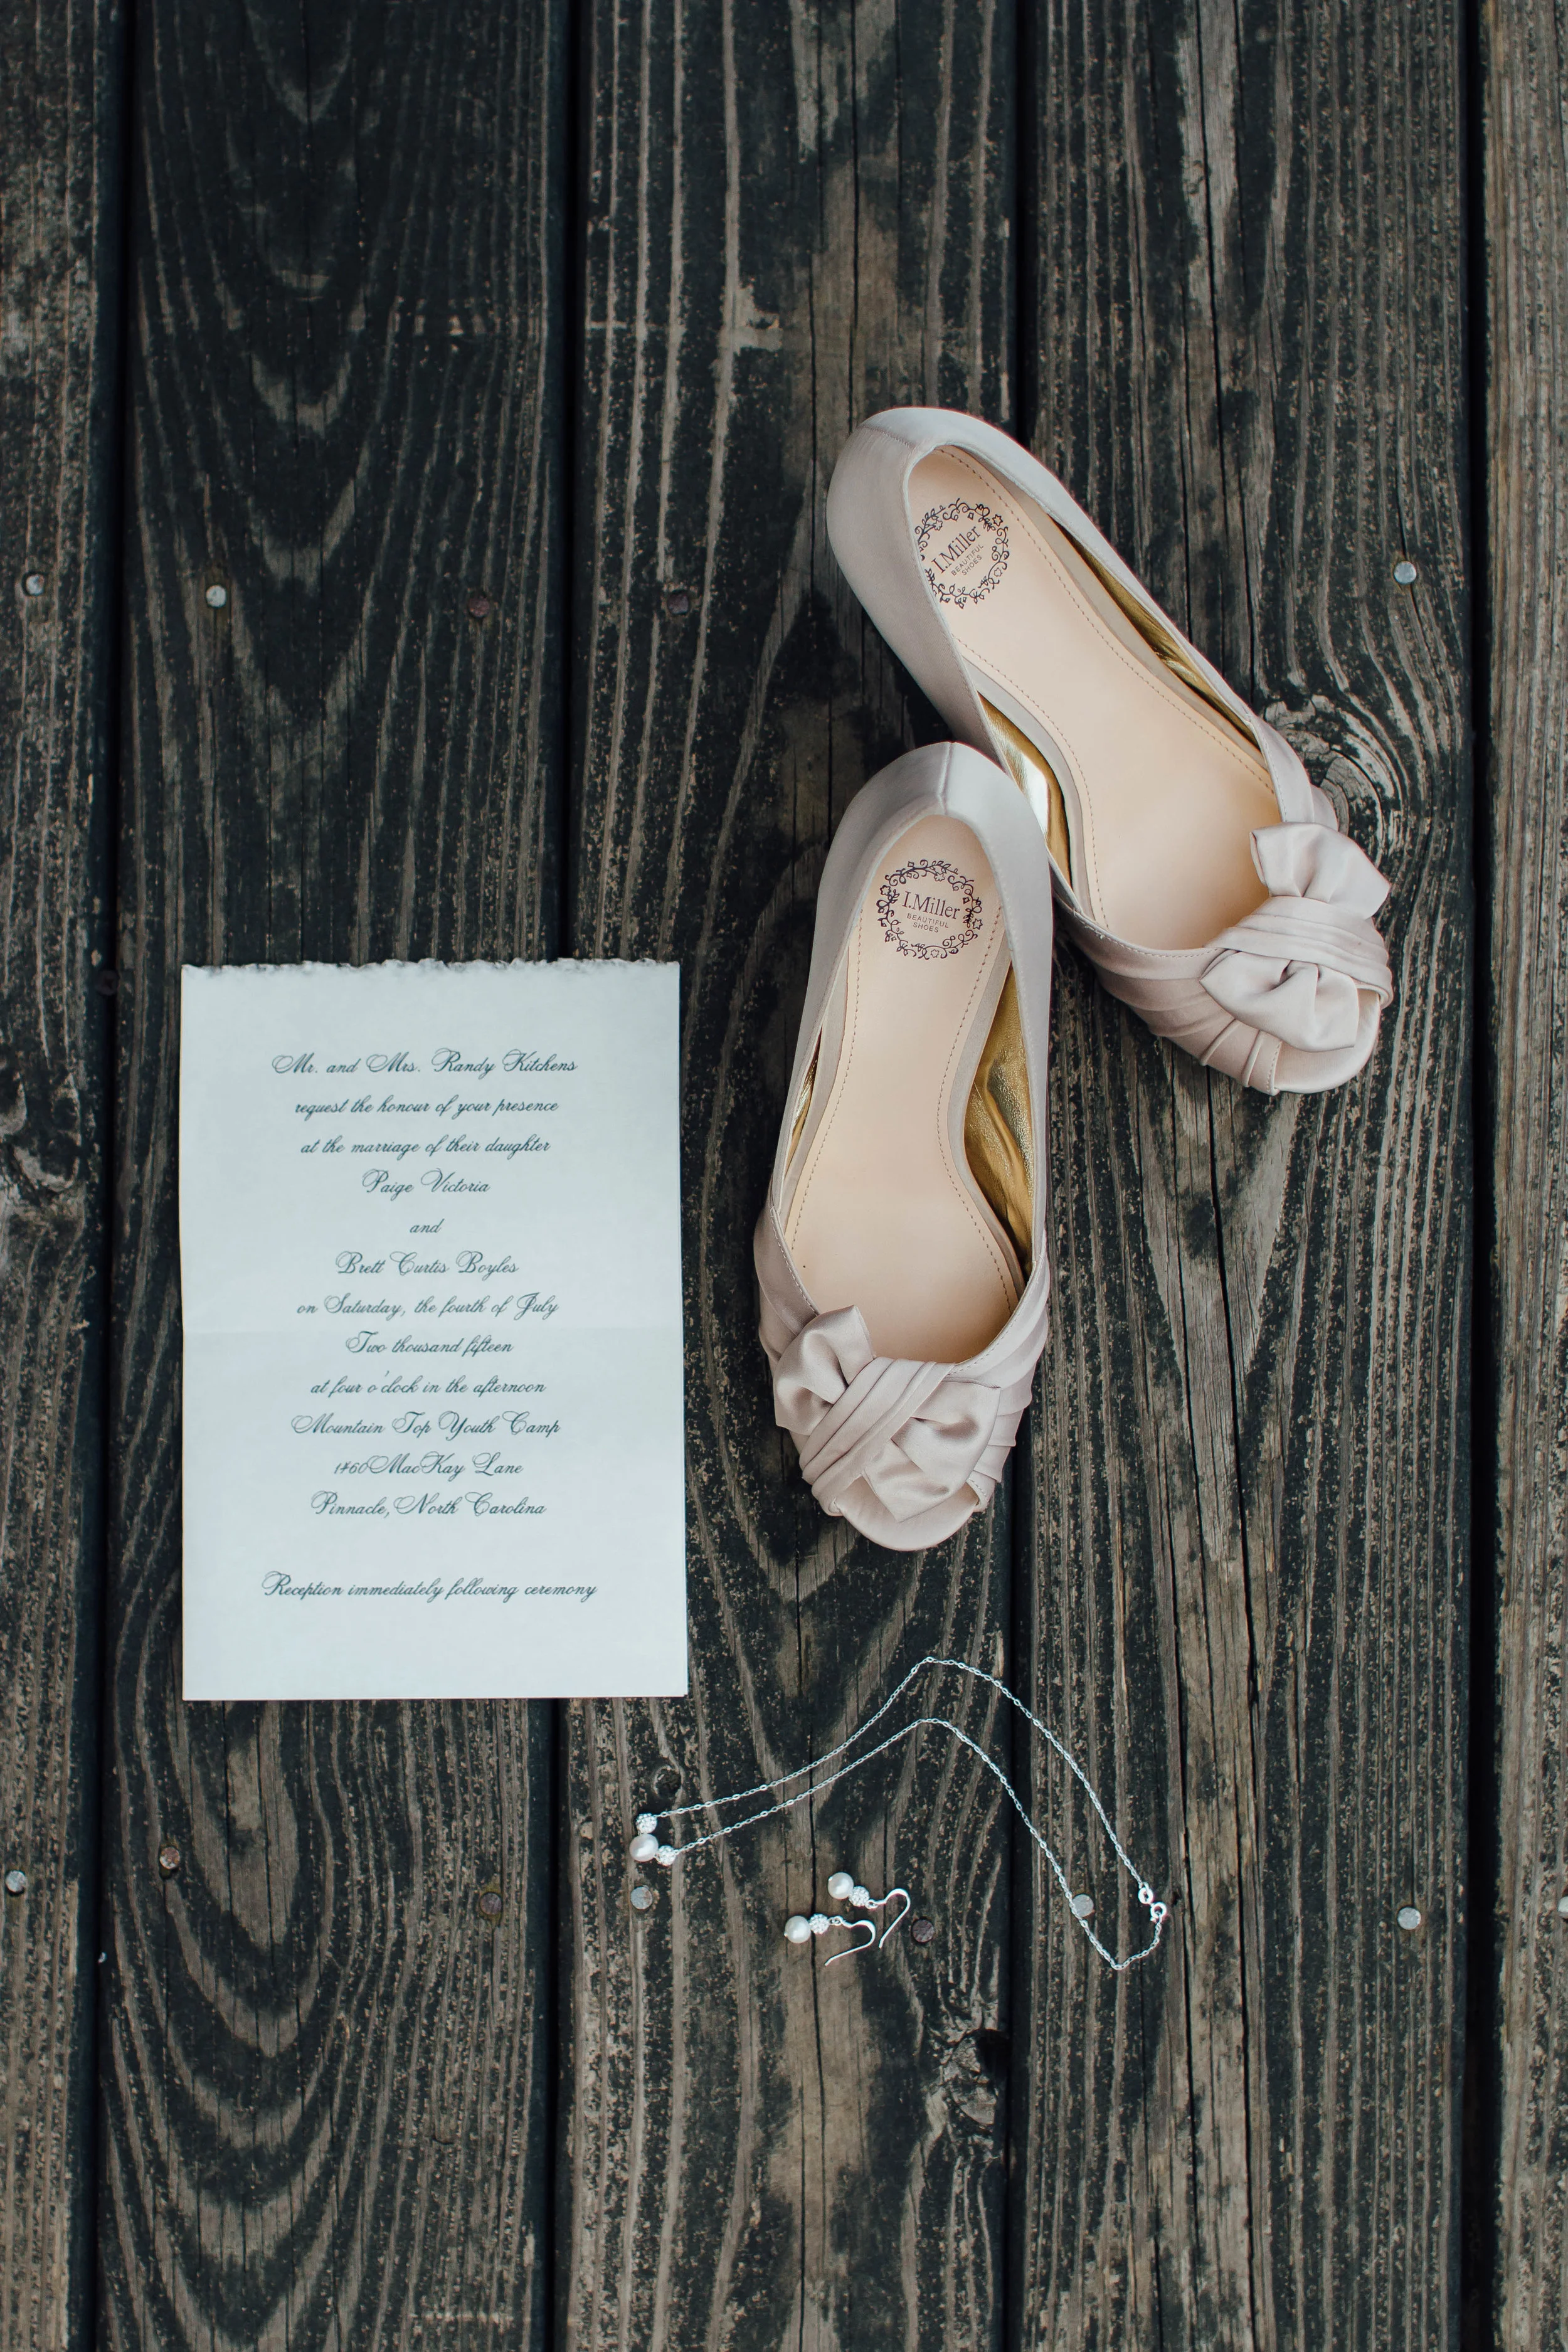 I.Miller
BEAUTIFUL
SHOES
I.Miller
BEAUTIFUL
SHOES
Mr. and Mrs. Randy Kitchens
request the honour of your presence
at the marriage of their daughter
Paige Victoria
and
Brett Curtis Boyles
on Saturday, the fourth of July
Two thousand fifteen
at four o'clock in the afternoon
Mountain Top Youth Camp
1460 MacKay Lane
Pinnacle, North Carolina
Reception immediately following ceremony